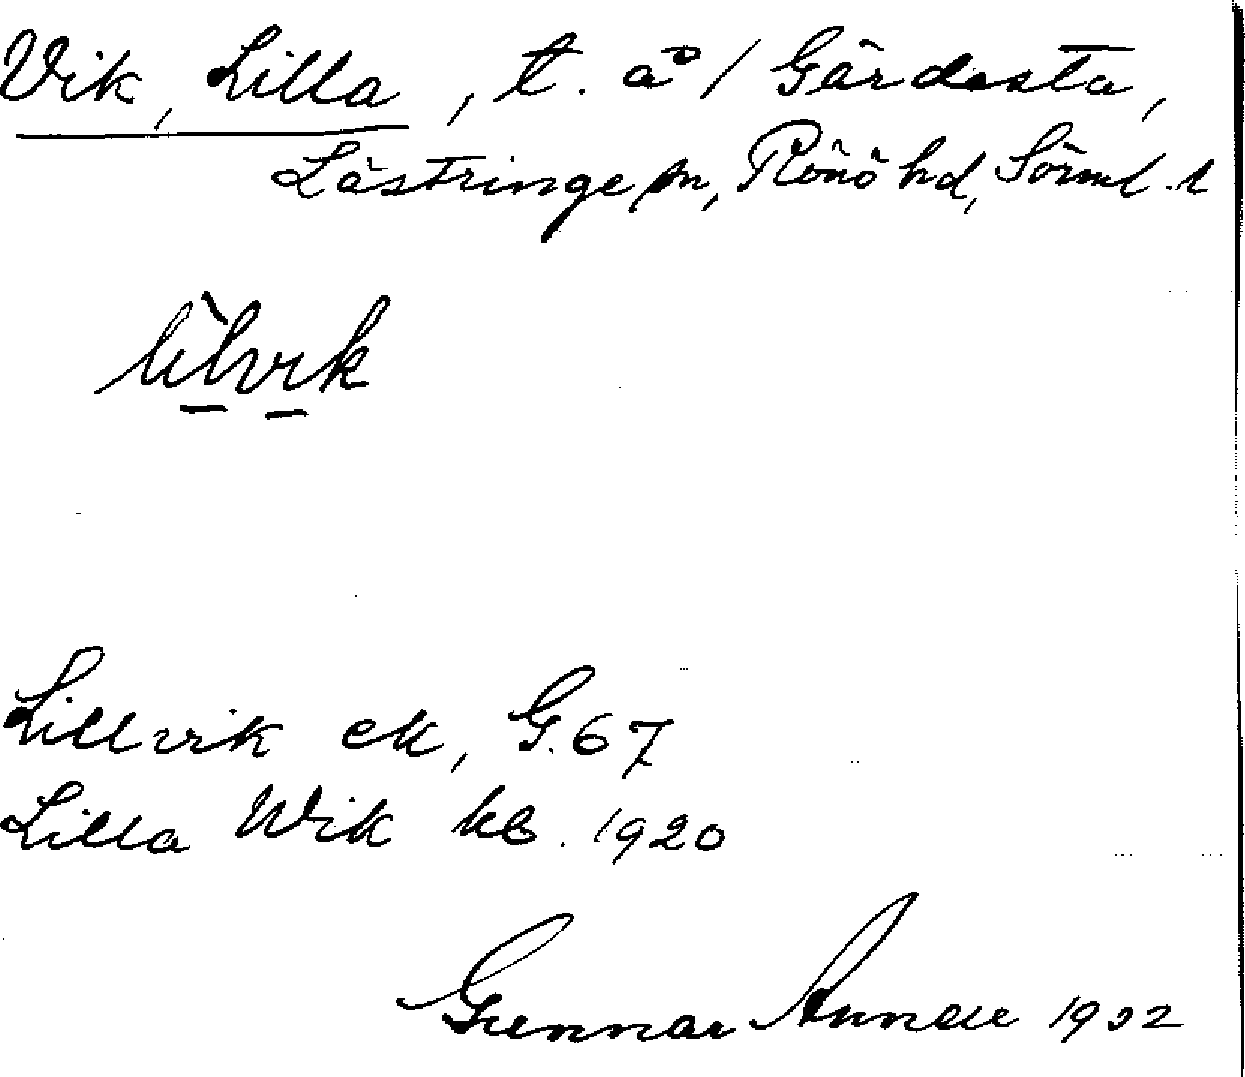 Vik, Lilla, t. å/ Gärdesta,
Lästringe sn, Rönö hd, Sörml. l
lìlvik
Lillvik ek, G. 67
Lilla Wik kb. 1920
Gunnar 1932